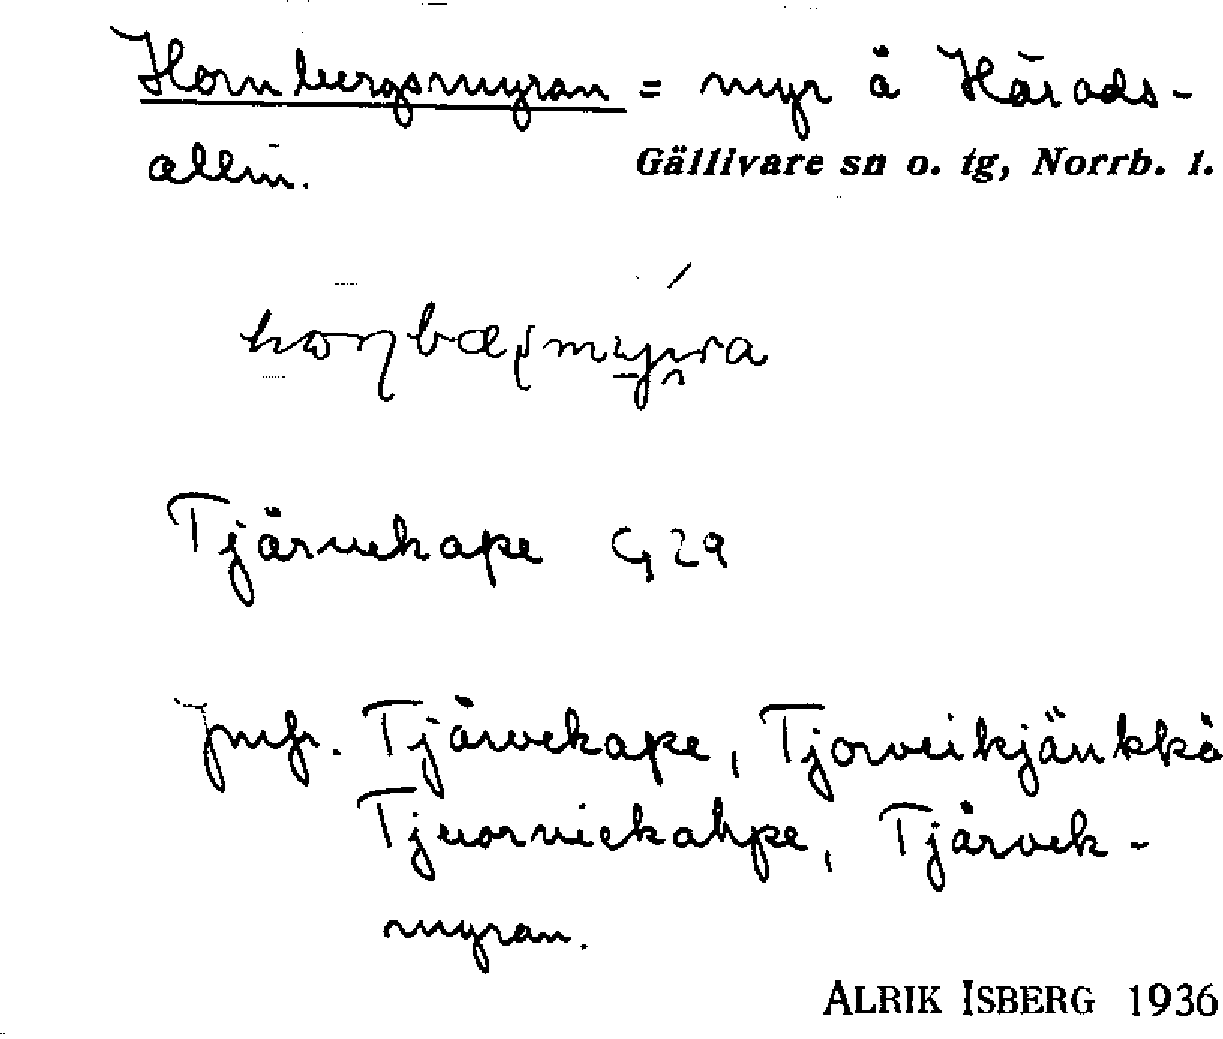 Hornbergsmyran = myr å Härads-
allm.
Gällivare sn o. tg, Norrb. l.
Tjårvekape G 29
Jmfr. Tjårvekape, Tjorveikjänkkä
Tjuorviekahpe, Tjårvek-
myran.
ALRIK ISBERG 1936